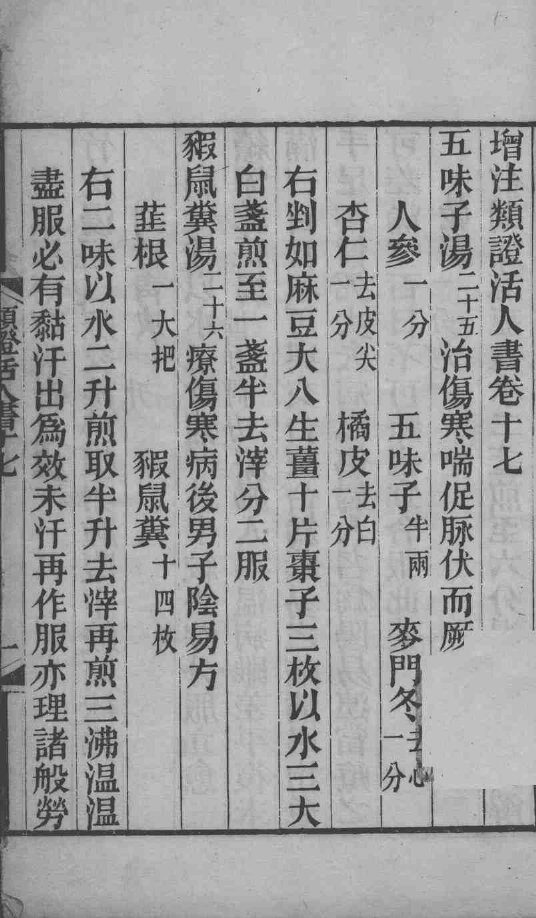 增注類證活人書卷十七
五味子湯二十五治傷寒喘促脉伏而厥
人參一分 五味子半兩 麥門冬去心一分
杏仁去皮尖一分 橘皮去白一分
右剉如麻豆大八生薑十片棗子三枚以水三大
白盞煎至一盞半去滓分二服
豭鼠糞湯二十六療傷寒病後男子陰易方
韮根一大把 豭鼠糞十四枚
右二味以水二升煎取半升去滓再煎三沸温温
盡服必有黏汗出爲效未汗再作服亦理諸般勞
類證活人書十七 一